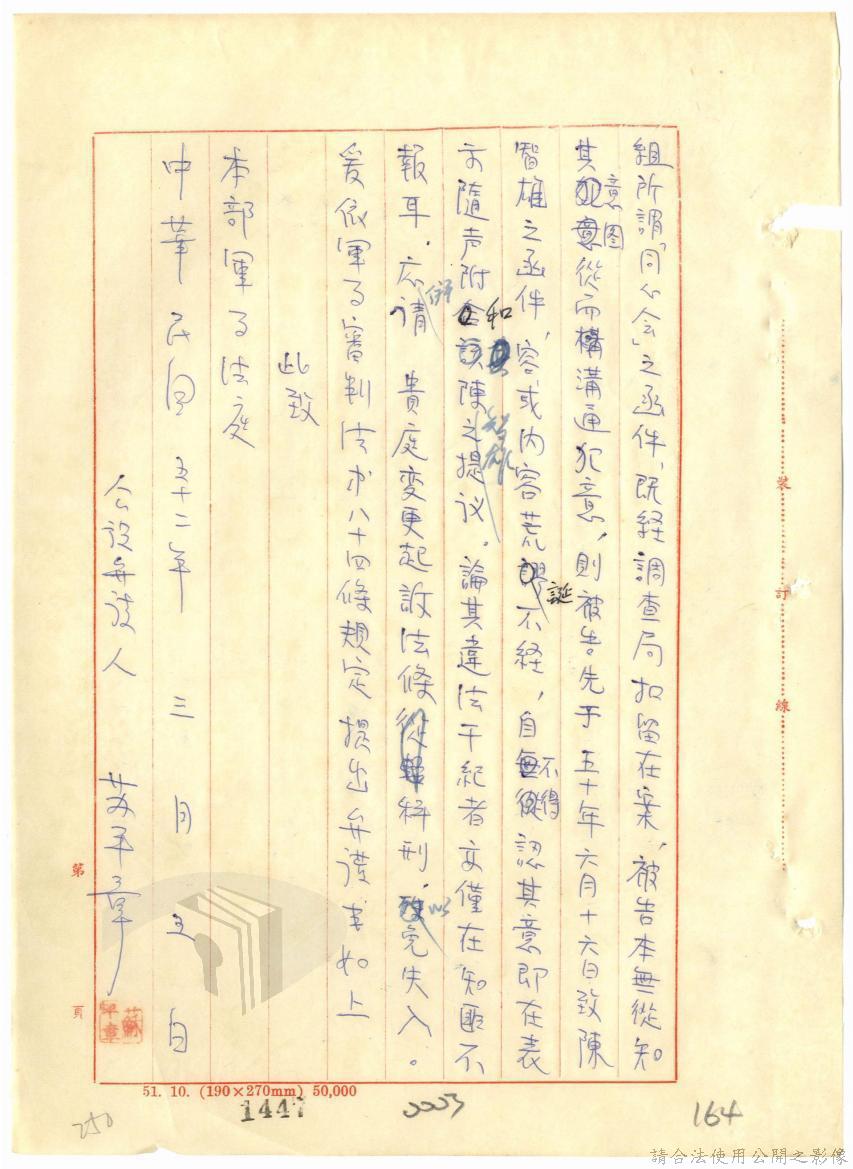 組所謂「同心会」之函件，既経調查局扣留在案，被告本無從知
其意图從而構溝通犯意，則被告先于五十年六月十六日致陳
智雄之函件，容或內容荒誕不経，自不得認其意即在表
示隨声附和陳智雄之提议。論其違法干紀者亦僅在知匪不
報耳．応請 貴庭変更起訴法條科刑．以免失入。
爰依軍事審判法第八十四條規定提出弁護書如上
此致
本部軍事法庭
中華民国五十二年 三 月 五 日
公設弁護人 苏平章
蘇平章
裝
訂
線
第
頁
51. 10. (190×270mm) 50,000
1447
0003
164
250
請合法使用公開之影像